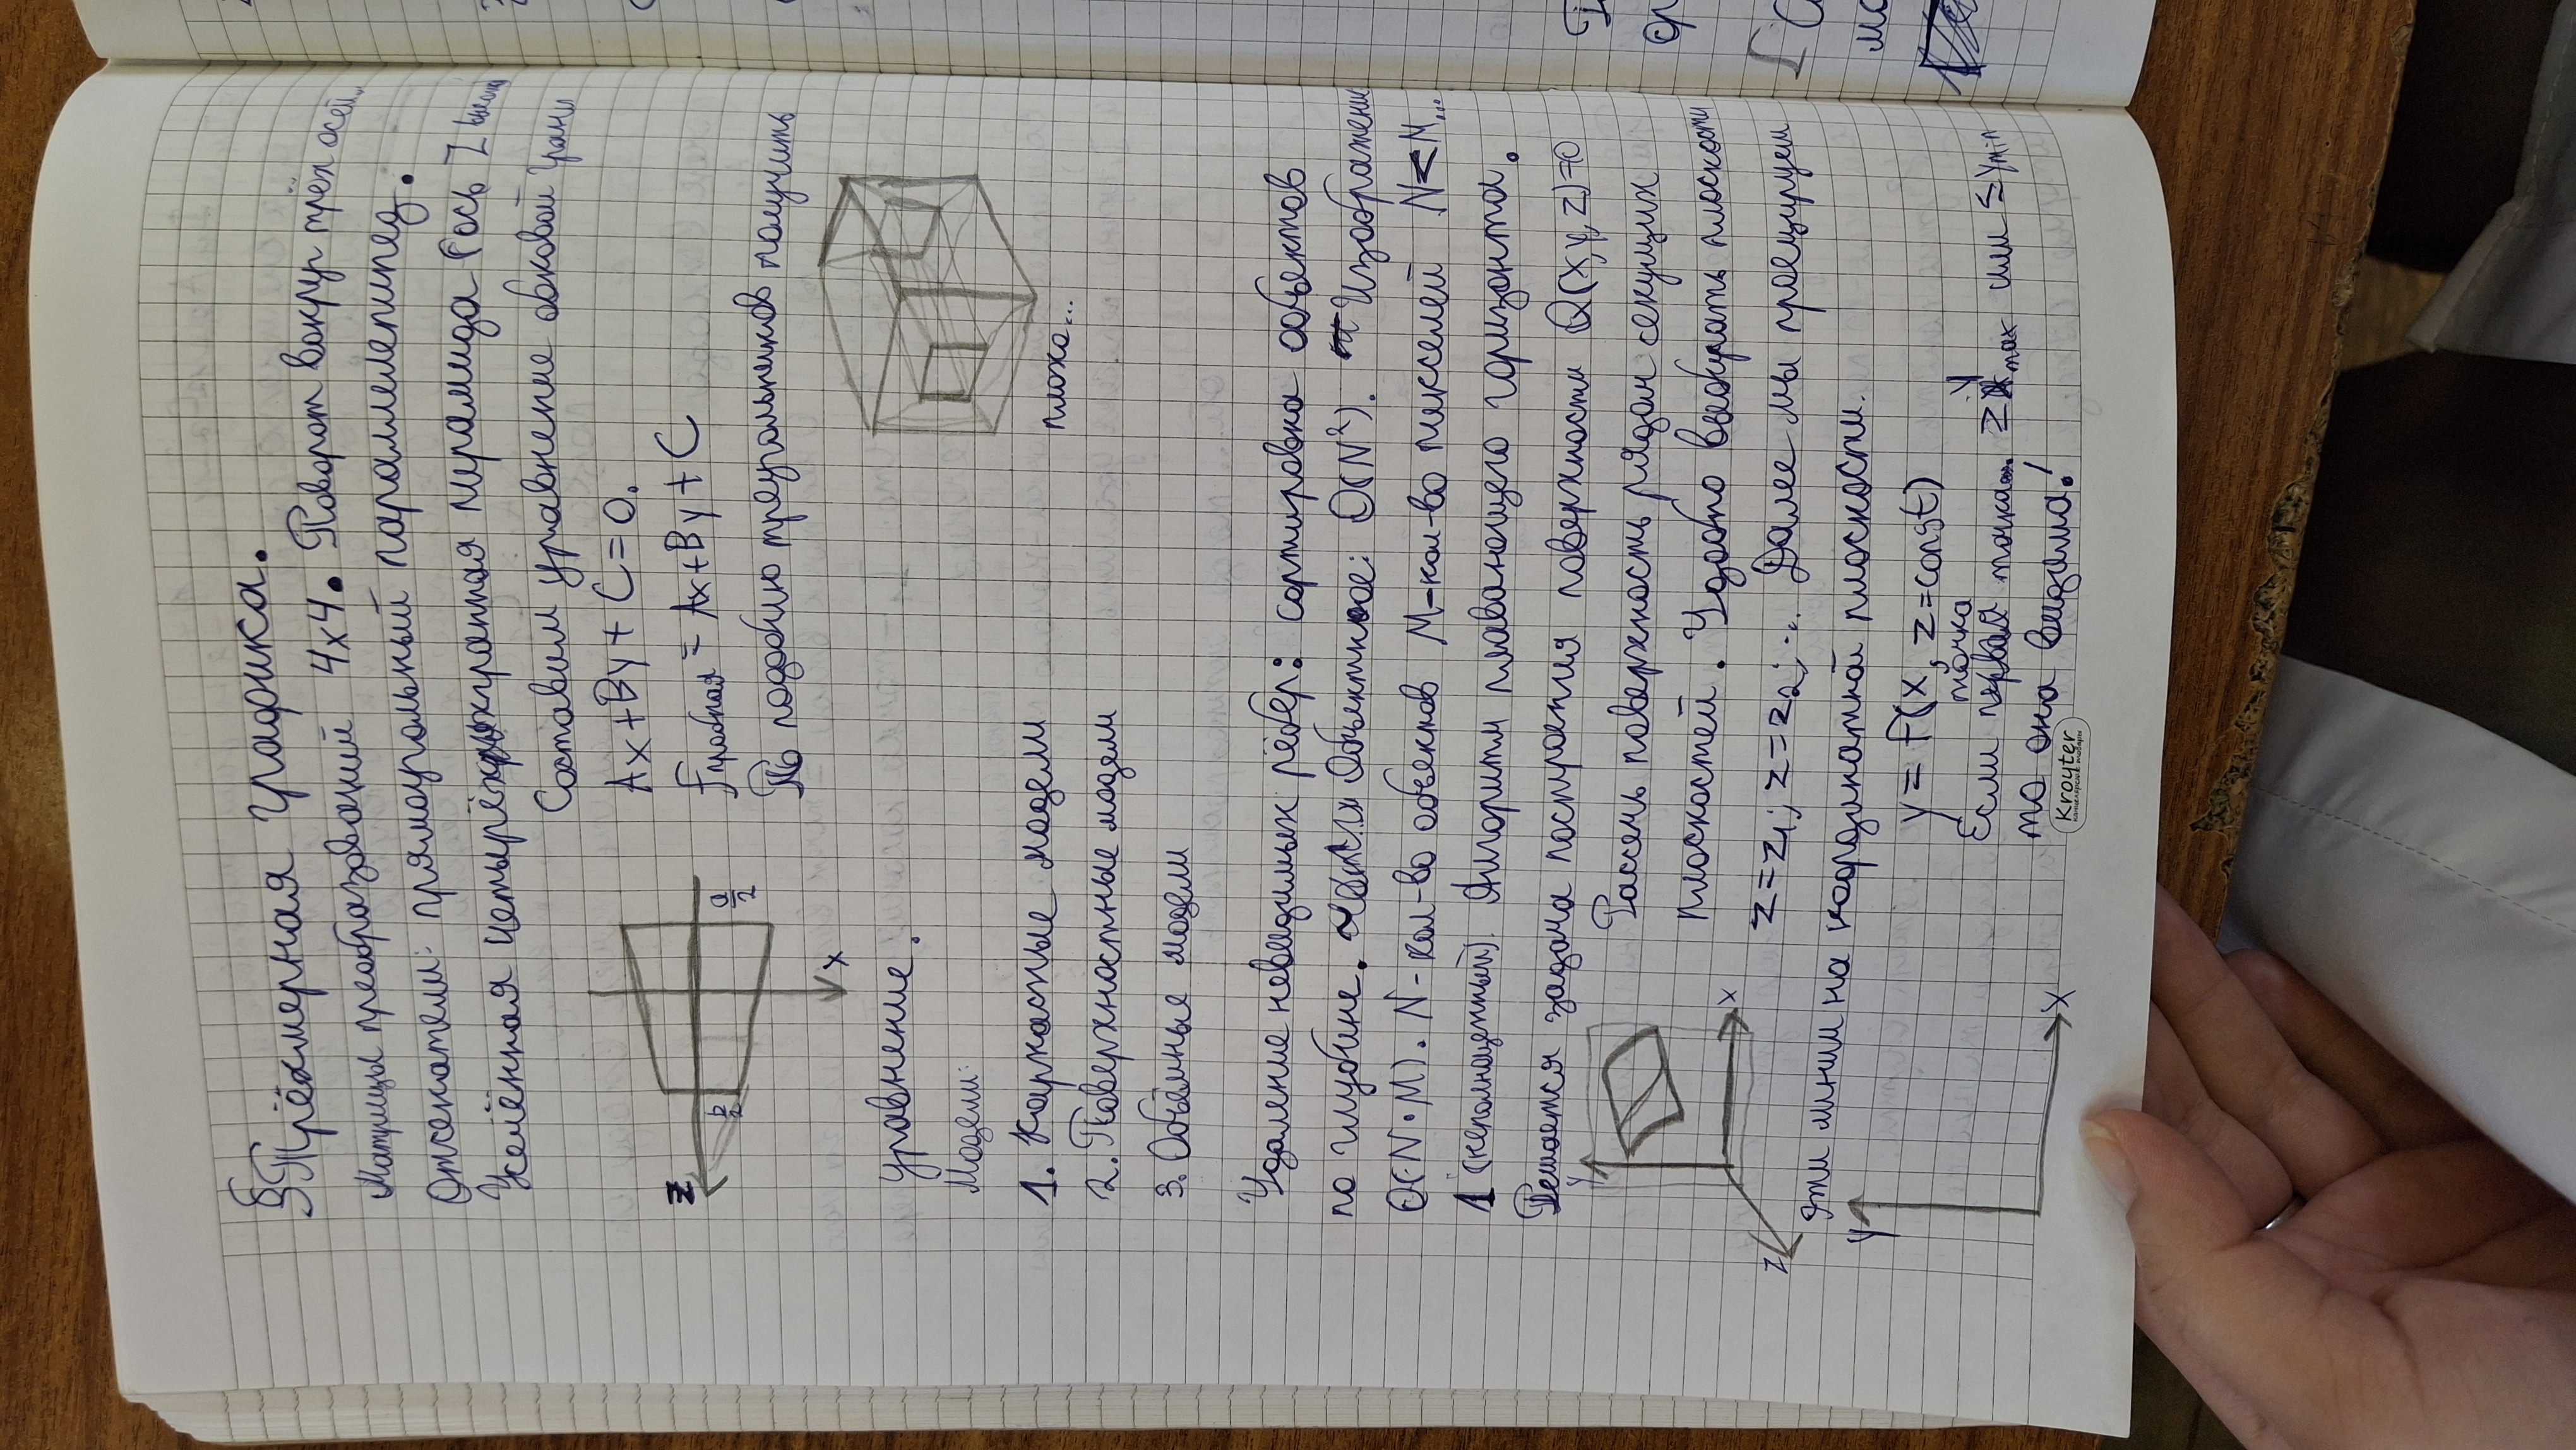 § Трёхмерная графика.
Матрицы преобразований 4x4. Поворот вокруг трёх осей.
Отсекатели: прямоугольный параллелепипед.
Усечённая четырёхгранная пирамида (ось Z
Составим уравнение боковой грани
Ax+By+C=0.
Fпробная = Ax+By+C
По подобию треугольников получить
Z
b/2
a/2
X
уравнение.
Модели:
1. Каркасные модели
2. Поверхностные модели
3. Объёмные модели
плохо...
Удаление невидимых рёбер: сортировка объектов
по глубине. Объектное: O(N²). Изображение
O(N·M). N-кол-во объектов M-кол-во пикселей N<M...
1 (неполноценный). Алгоритм плавающего горизонта.
Решается задача построения поверхности Q(x,y,z)=0
Y
X
Z
Рассечь поверхность рядом секущих
плоскостей. Удобно выбирать плоскости
z=z₁; z=z₂; ... Далее мы проецируем
эти линии на координатной плоскости.
Y
X
y = f(x, z=const)
точка
Если точка... ≥ Ymax или ≤ Ymin
то она видима!
Kroyter
канцелярские товары